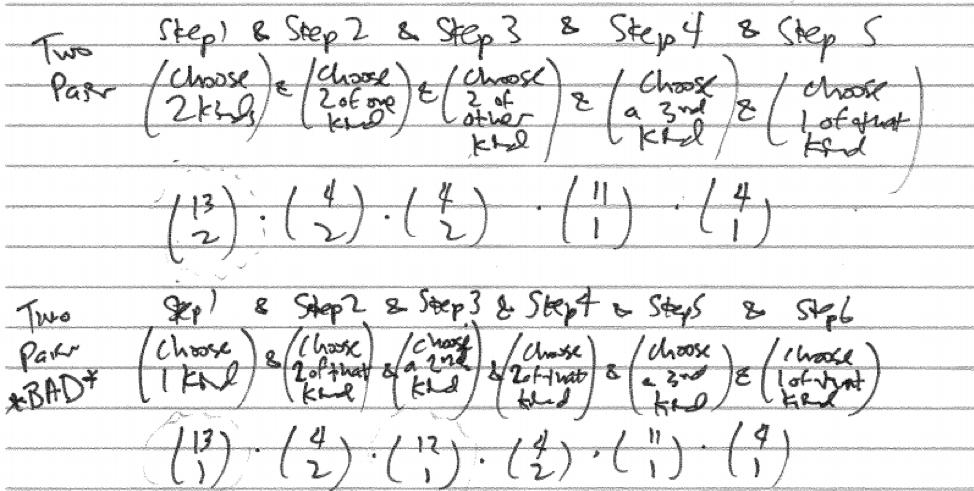 Two Pair
Step 1 & Step 2 & Step 3 & Step 4 & Step 5
(Choose 2 kinds) & (Choose 2 of one kind) & (Choose 2 of other kind) & (Choose a 3rd kind) & (Choose 1 of that kind)
(13 2) · (4 2) · (4 2) · (11 1) · (4 1)
Two Pair *BAD*
Step 1 & Step 2 & Step 3 & Step 4 & Step 5 & Step 6
(Choose 1 kind) & (Choose 2 of that kind) & (Choose a 2nd kind) & (Choose 2 of that kind) & (Choose a 3rd kind) & (Choose 1 of that kind)
(13 1) · (4 2) · (12 1) · (4 2) · (11 1) · (4 1)